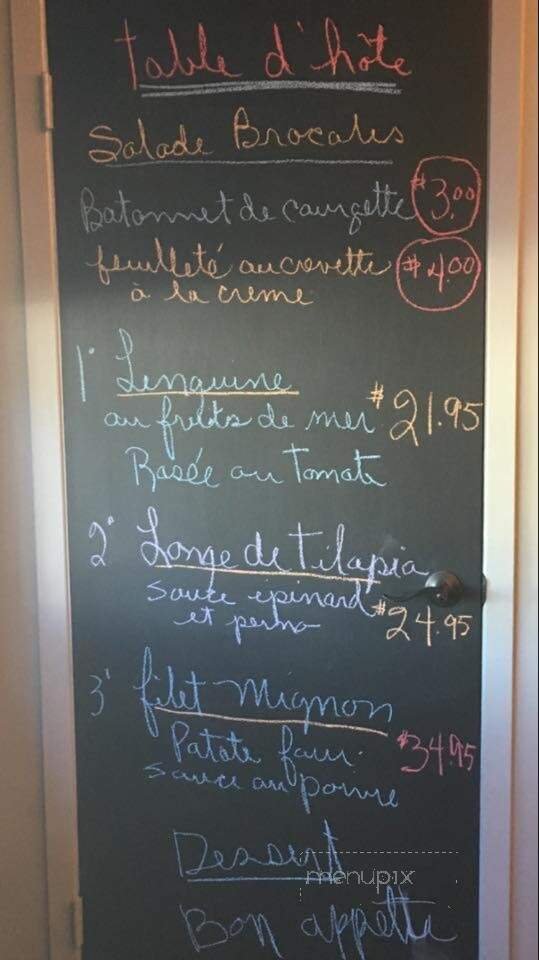 Table d'hôte
Salade Brocalis
Batonnet de caurgette $3.00
feuilleté au crevette $4.00
à la creme
1° Linguine
au fruits de mer $21.95
Rosée au tomate
2° Longe de tilapia
sauce epinard $24.95
et perno
3° filet Mignon
Patate four $34.95
sauce au poivre
Dessert
menupix
Bon appetit